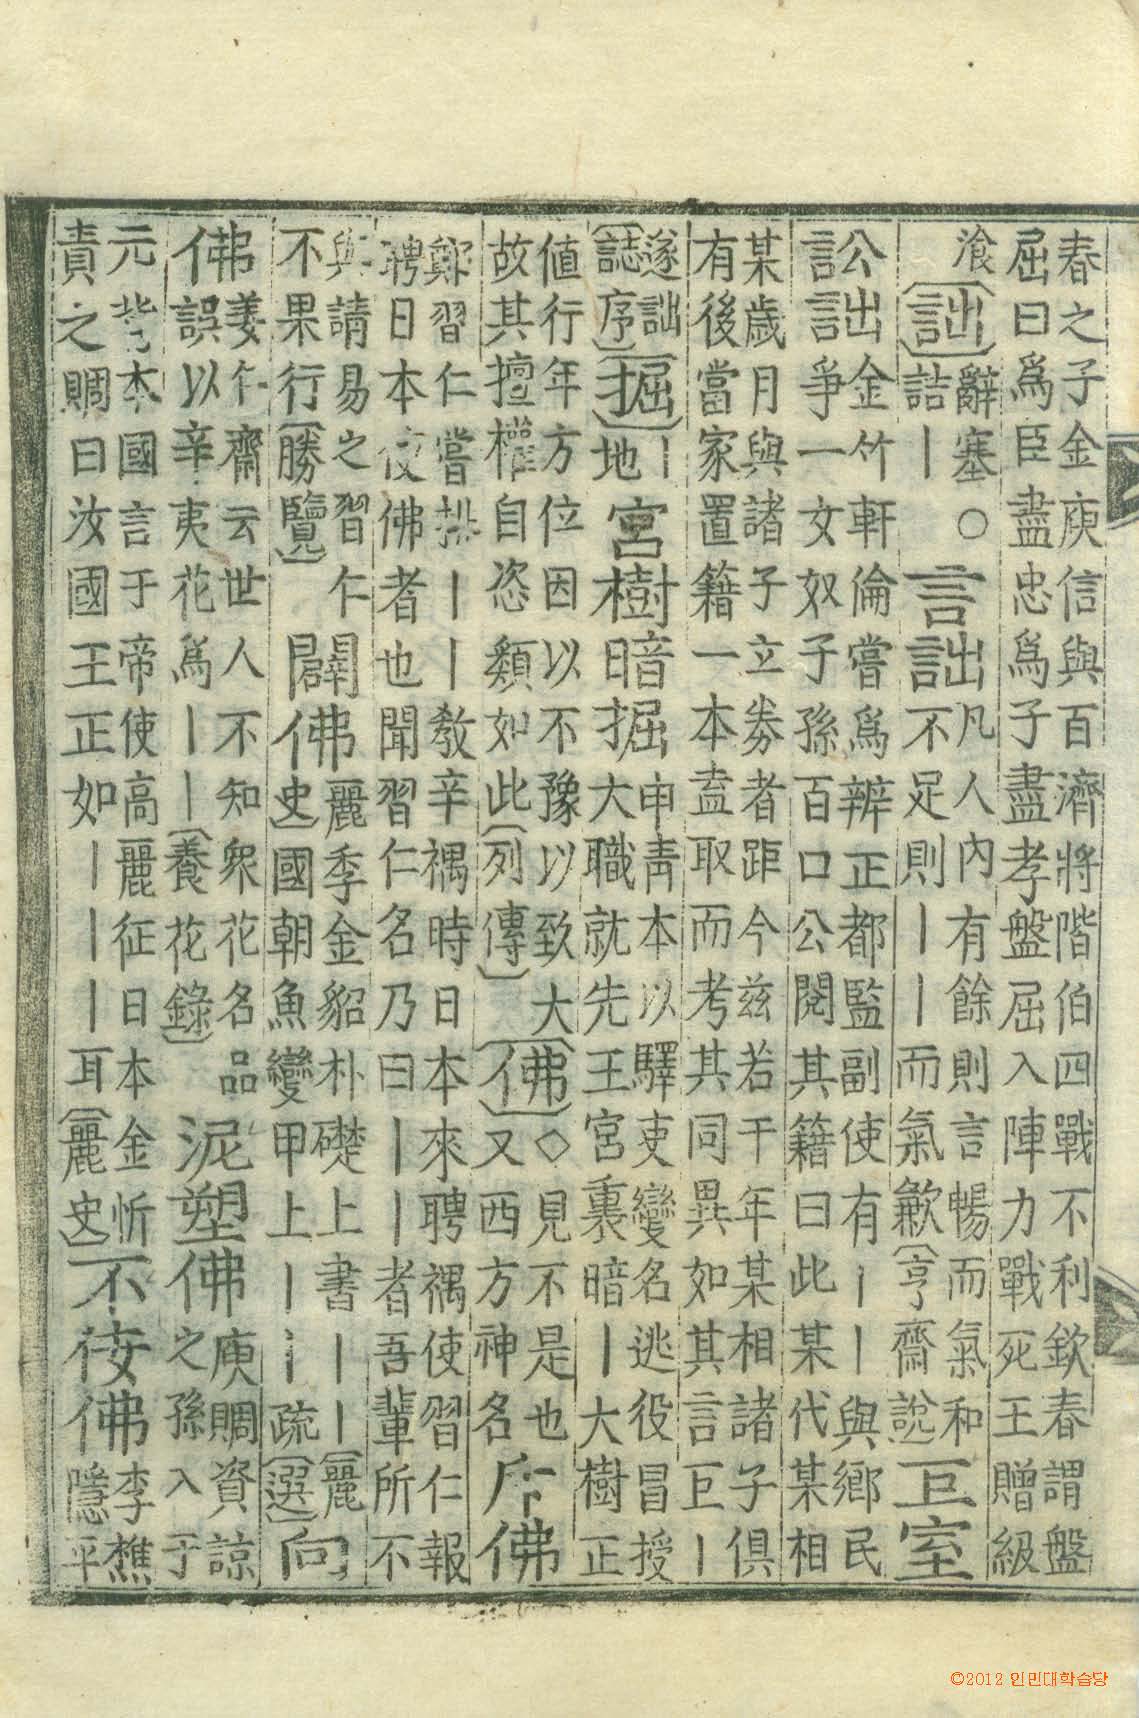 春之子金庾信與百濟將階伯四戰不利欽春謂盤
屈曰爲臣盡忠爲子盡孝盤屈入陣力戰死王贈級
湌
詘
辭塞○
詰丨
言詘
凡人內有餘則言暢而氣和
不足則丨丨而氣歉(亨齋說)
巨室
訟詘
金竹軒倫嘗爲辨正都監副使有丨丨與鄉民
爭一女奴子孫百口公閱其籍曰此某代某相
某歲月與諸子立券者距今玆若干年某相諸子俱
有後當家置籍一本盍取而考其同異如其言巨丨
遂詘
(誌序)
掘
丨
地
宮樹暗掘
申靑本以驛吏變名逃役冒授
大職就先王宮裏暗丨大樹正
値行年方位因以不豫以致大
故其擅權自恣類如此(列傳)
佛
◇見不是也
又西方神名
斥佛
鄭習仁嘗排丨丨敎辛禑時日本來聘禑使習仁報
聘日本使佛者也聞習仁名乃曰丨丨者吾輩所不
與請易之習仁
不果行(勝覽)
闢佛
麗季金貂朴礎上書丨丨(麗
史)國朝魚變甲上丨丨疏(選)
向
佛
姜仁齋云世人不知衆花名品
誤以辛夷花爲丨丨(養花錄)
泥塑佛
庾賙資諒
之孫入于
元背本國言于帝使高麗征日本金忻
責之賙曰汝國王正如丨丨丨耳(麗史)
不佞佛
李樵
隱平
©2012 인민대학습당